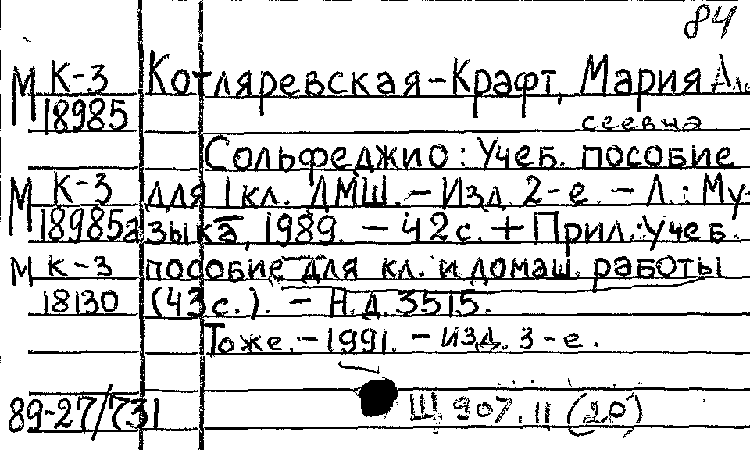 84
М К-3 Котляревская-Крафт, Мария Але
18985 сеевна
Сольфеджио: Учеб. пособие
М К-3 для 1 кл. ДМШ. - Изд. 2-е. - Л.: Му-
18985а зыка, 1989. - 42 с. + Прил.: Учеб.
М К-3 пособие для кл. и домаш. работы
18130 (43 с.). - Н.д. 3515.
То же. - 1991. - Изд. 3-е.
89-27/731 Щ 907.11 (20)